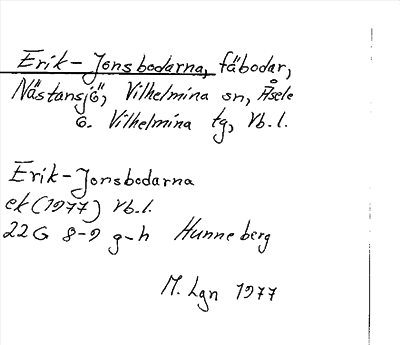 Erik-Jonsbodarna, fäbodar,
Nästansjö, Vilhelmina sn, Åsele
o. Vilhelmina tg, Vb.l.
Erik-Jonsbodarna
ek (1977) Vb.l.
22G 8-9 g-h Hunneberg
M. Lgn 1977